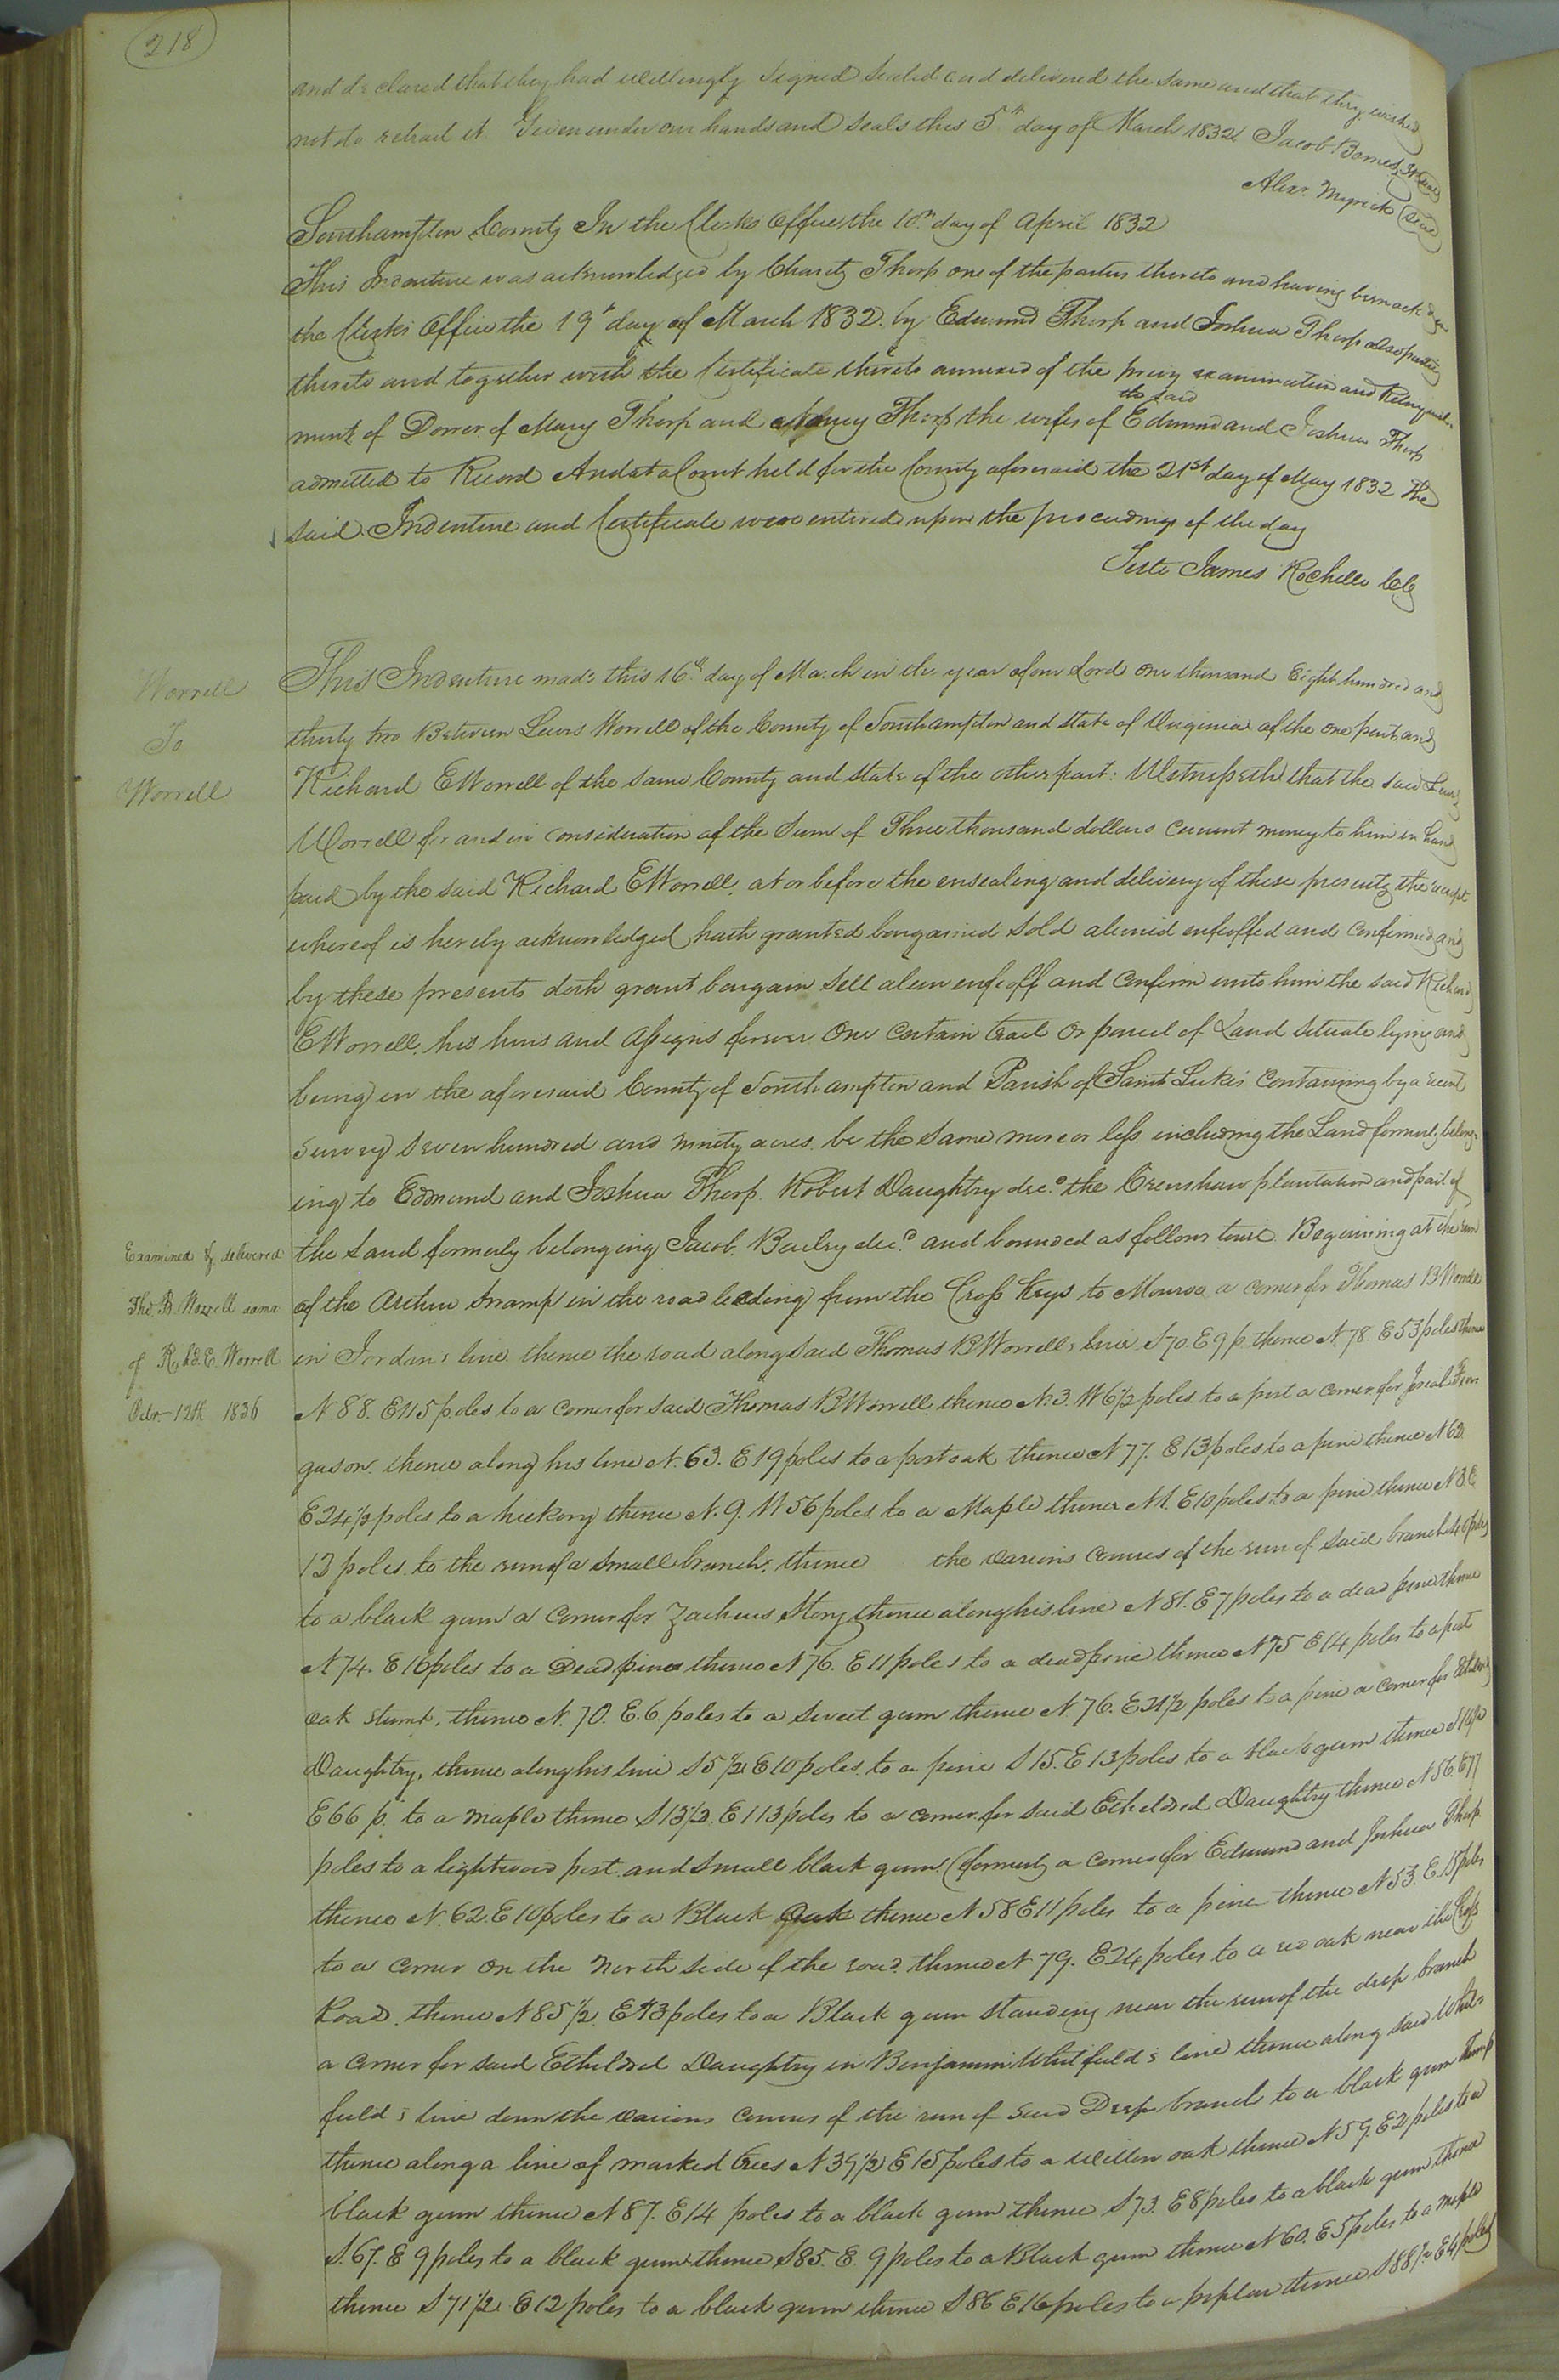 218
and declared that they had willingly signed sealed and delivered the same and that they wished
not to retract it. Given under our hands and seals this 5th day of March 1832. Jacob Barnes (Seal)
Alexr. Myrick (Seal)
Southampton County In the Clerks Office the 10th day of April 1832
This Indenture was acknowledged by Charity Thorp one of the parties thereto and having been ackd in
the Clerks Office the 19th day of March 1832. by Edmund Thorp and Joshua Thorp also parties
thereto and together with the Certificate thereto annexed of the privy examination and Relinquish-
ment of Dower of Mary Thorp and Nancy Thorp the wifes of the said Edmund and Joshua Thorp
admitted to Record And at a Court held for the County aforesaid the 21st day of May 1832 The
said Indenture and Certificate were entered upon the proceedings of the day
Teste James Rochelle ClC
Worrell
To
Worrell
This Indenture made this 16th day of March in the year of our Lord one thousand Eight hundred and
thirty two Between Lewis Worrell of the County of Southampton and State of Virginia of the one part and
Richard E Worrell of the same County and State of the other part: Witnesseth that the said Lewis
Worrell for and in consideration of the Sum of Three thousand dollars current money to him in hand
paid by the said Richard E Worrell, at or before the ensealing and delivery of these presents, the receipt
whereof is hereby acknowledged hath granted bargained sold aliened enfeoffed and confirmed and
by these presents doth grant bargain sell alien enfeoff and confirm unto him the said Richard
E Worrell, his heirs and assigns forever One certain tract or parcel of Land situate lying and
being in the aforesaid County of Southampton and Parish of Saint Lukes Containing by a recent
survey seven hundred and ninety acres be the same more or less including the Land formerly belong-
ing to Edmund and Joshua Thorp. Robert Daughtry decd the Crenshaw plantation and part of
the Land formerly belonging Jacob Bailey decd and bounded as follows towit Beginning at the run
of the Arthur Swamp in the road leading from the Cross Keys to Monroe a corner for Thomas B Worrell
in Jordan's line thence the road along said Thomas B Worrell's line S 70. E 9 p. thence N 78. E 53 poles thence
N. 88. E 115 poles to a corner for said Thomas B Worrell thence N. 3. W 6 1/2 poles to a post a corner for Josiah Fer-
guson. thence along his line N. 63. E 19 poles to a post oak thence N 77. E 13 poles to a pine thence N 62.
E 24 1/2 poles to a hickory thence N. 9. W 56 poles. to a Maple thence N 1. E 10 poles to a pine thence N 3. E
12 poles. to the run of a small branch, thence the various courses of the run of said branch 40 poles
to a black gum a corner for Zacheus Story thence along his line N 81. E 7 poles to a dead pine thence
N 74. E 16 poles to a Dead pine thence N 76. E 11 poles to a dead pine thence N 75 E 14 poles to a post
oak stump, thence N. 70. E. 6. poles to a sweet gum thence N 76. E 21 1/2 poles to a pine a corner for Etheldred
Daughtry, thence along his line S 5 1/2 E 10 poles. to a pine S 15. E 13 poles to a black gum thence S 16 1/2
E 66 p. to a maple thence S 13 1/2. E 113 poles to a corner for said Etheldred Daughtry thence N 56. E 77
poles to a lightwood post and small black gum (formerly a corner for Edmund and Joshua Thorp
thence N. 62. E 10 poles to a Black Oak thence N 58 E 11 poles to a pine thence N 53. E. 15 poles
to a corner on the North side of the road thence N 79. E 24 poles to a red oak near the Cross
Road. thence N 85 1/2. E 43 poles to a Black gum standing near the run of the deep branch
a corner for said Etheldred Daughtry in Benjamin Whitfield's line thence along said Whit-
field's line down the various courses of the run of said Deep branch to a black gum stump
thence along a line of marked trees N 39 1/2 E 15 poles to a willow oak thence N 59. E 2 poles to a
black gum thence N 87. E 14 poles to a black gum thence S 73. E 8 poles to a black gum thence
S. 67. E 9 poles to a black gum thence S 85. E. 9 poles to a Black gum thence N 60. E 5 poles to a maple
thence S 71 1/2 E 12 poles to a black gum thence S 86 E 16 poles to a poplar thence S 88 1/2 E 4 poles
Examined & delivered
Tho. B. Worrell exmr
of Rhd. E. Worrell
Octr. 12th 1836